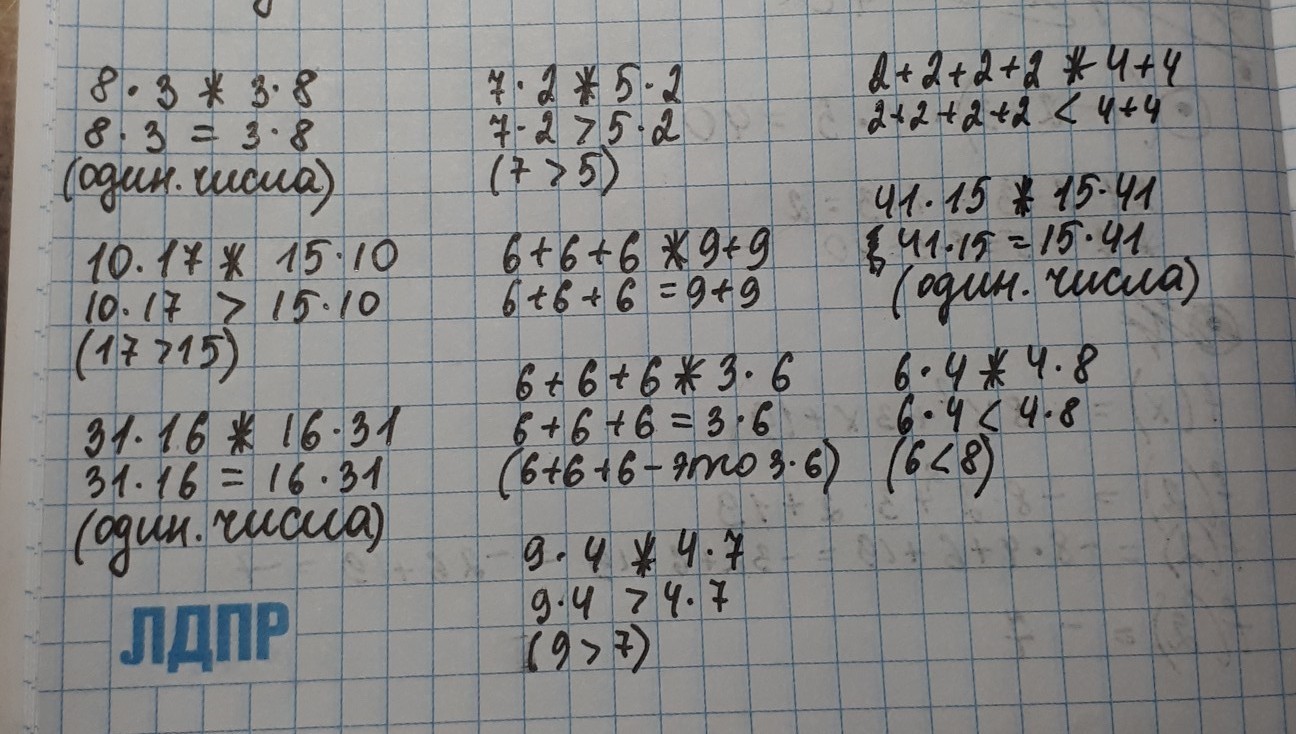 8·3 * 3·8
8·3 = 3·8
(один. числа)
10·17 * 15·10
10·17 > 15·10
(17>15)
31·16 * 16·31
31·16 = 16·31
(один. числа)
ЛДПР
7·2 * 5·2
7·2 > 5·2
(7 > 5)
6+6+6 * 9+9
6+6+6 = 9+9
6+6+6 * 3·6
6+6+6 = 3·6
(6+6+6 - это 3·6)
9·4 * 4·7
9·4 > 4·7
(9 > 7)
2+2+2+2 * 4+4
2+2+2+2 < 4+4
41·15 * 15·41
41·15 = 15·41
(один. числа)
6·4 * 4·8
6·4 < 4·8
(6<8)